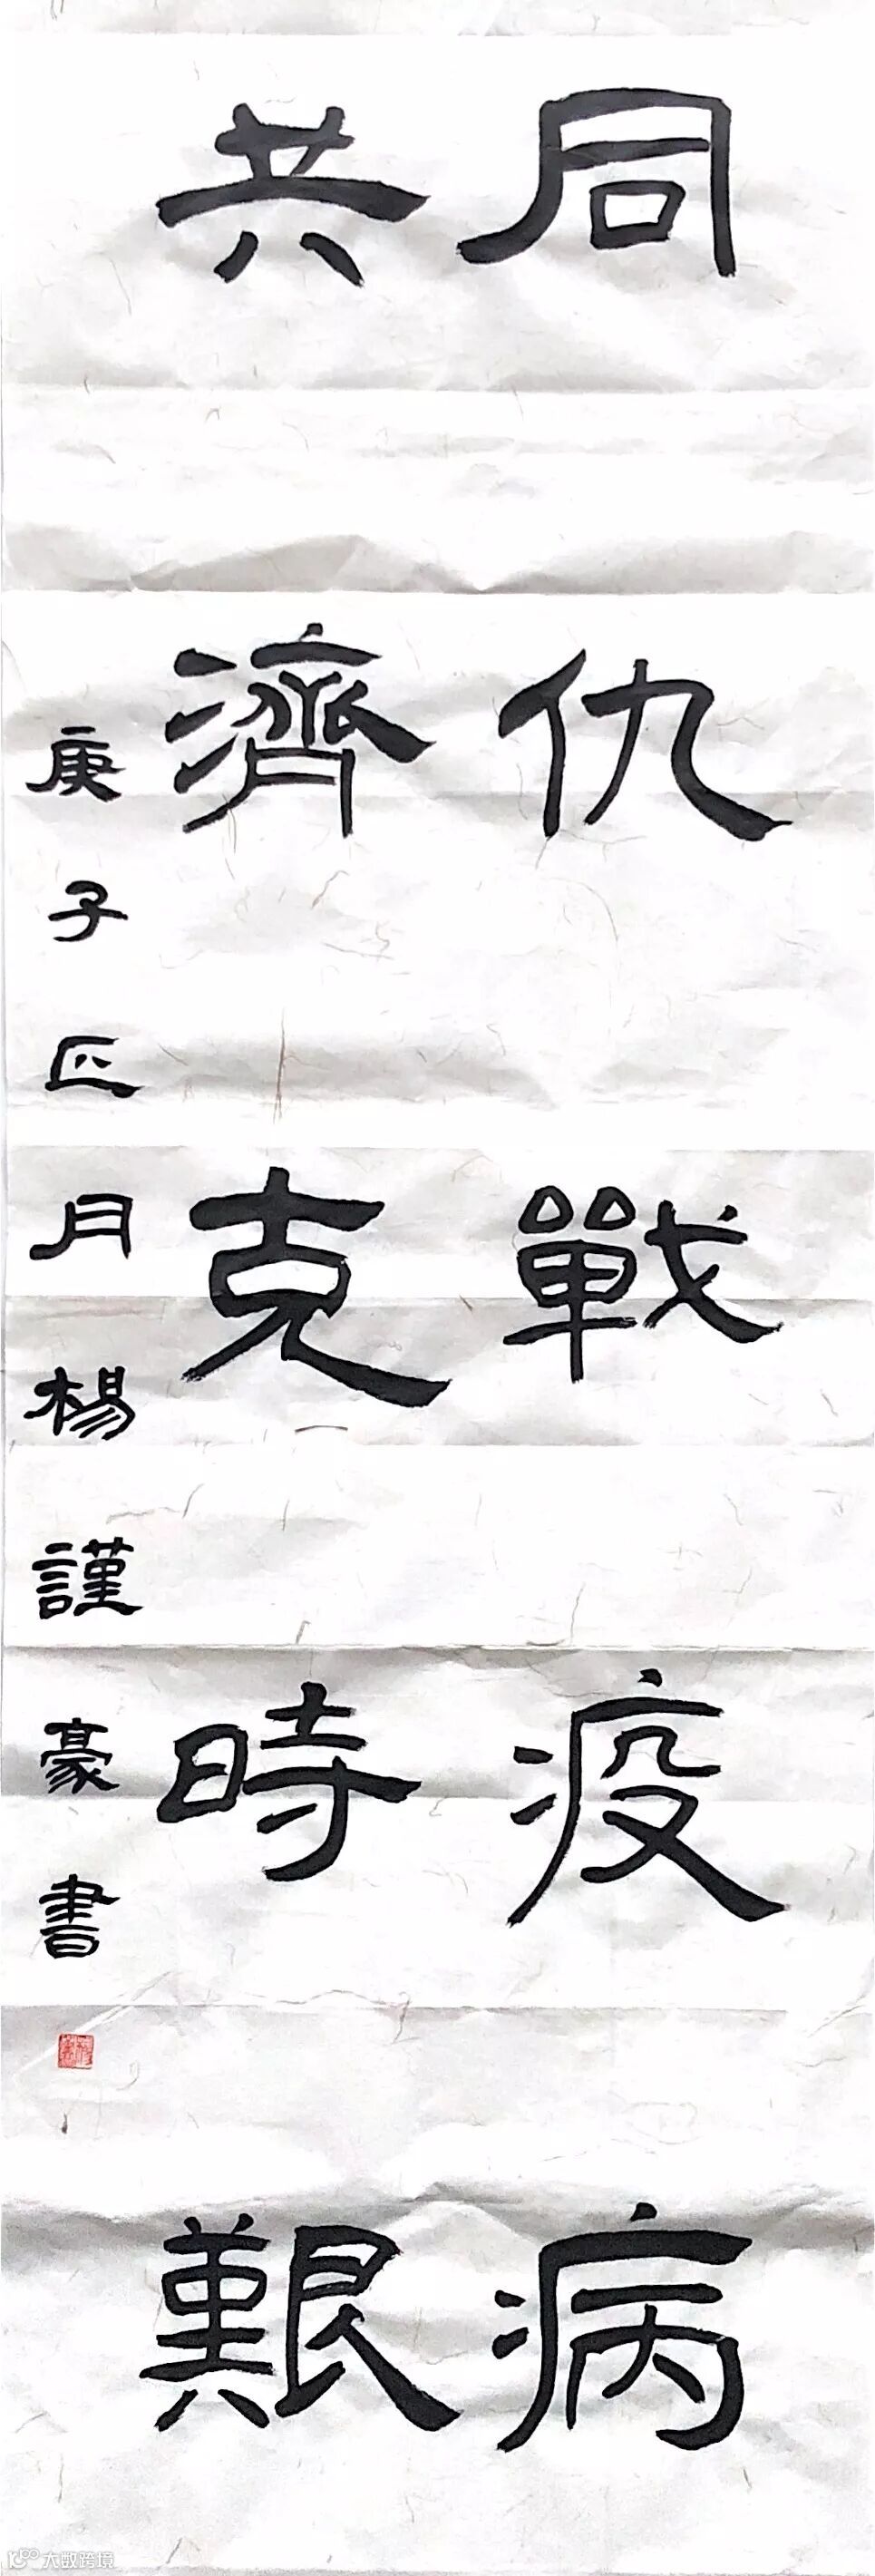 同仇戰疫病
共濟克時艱
庚子正月楊謹豪書
大数跨境